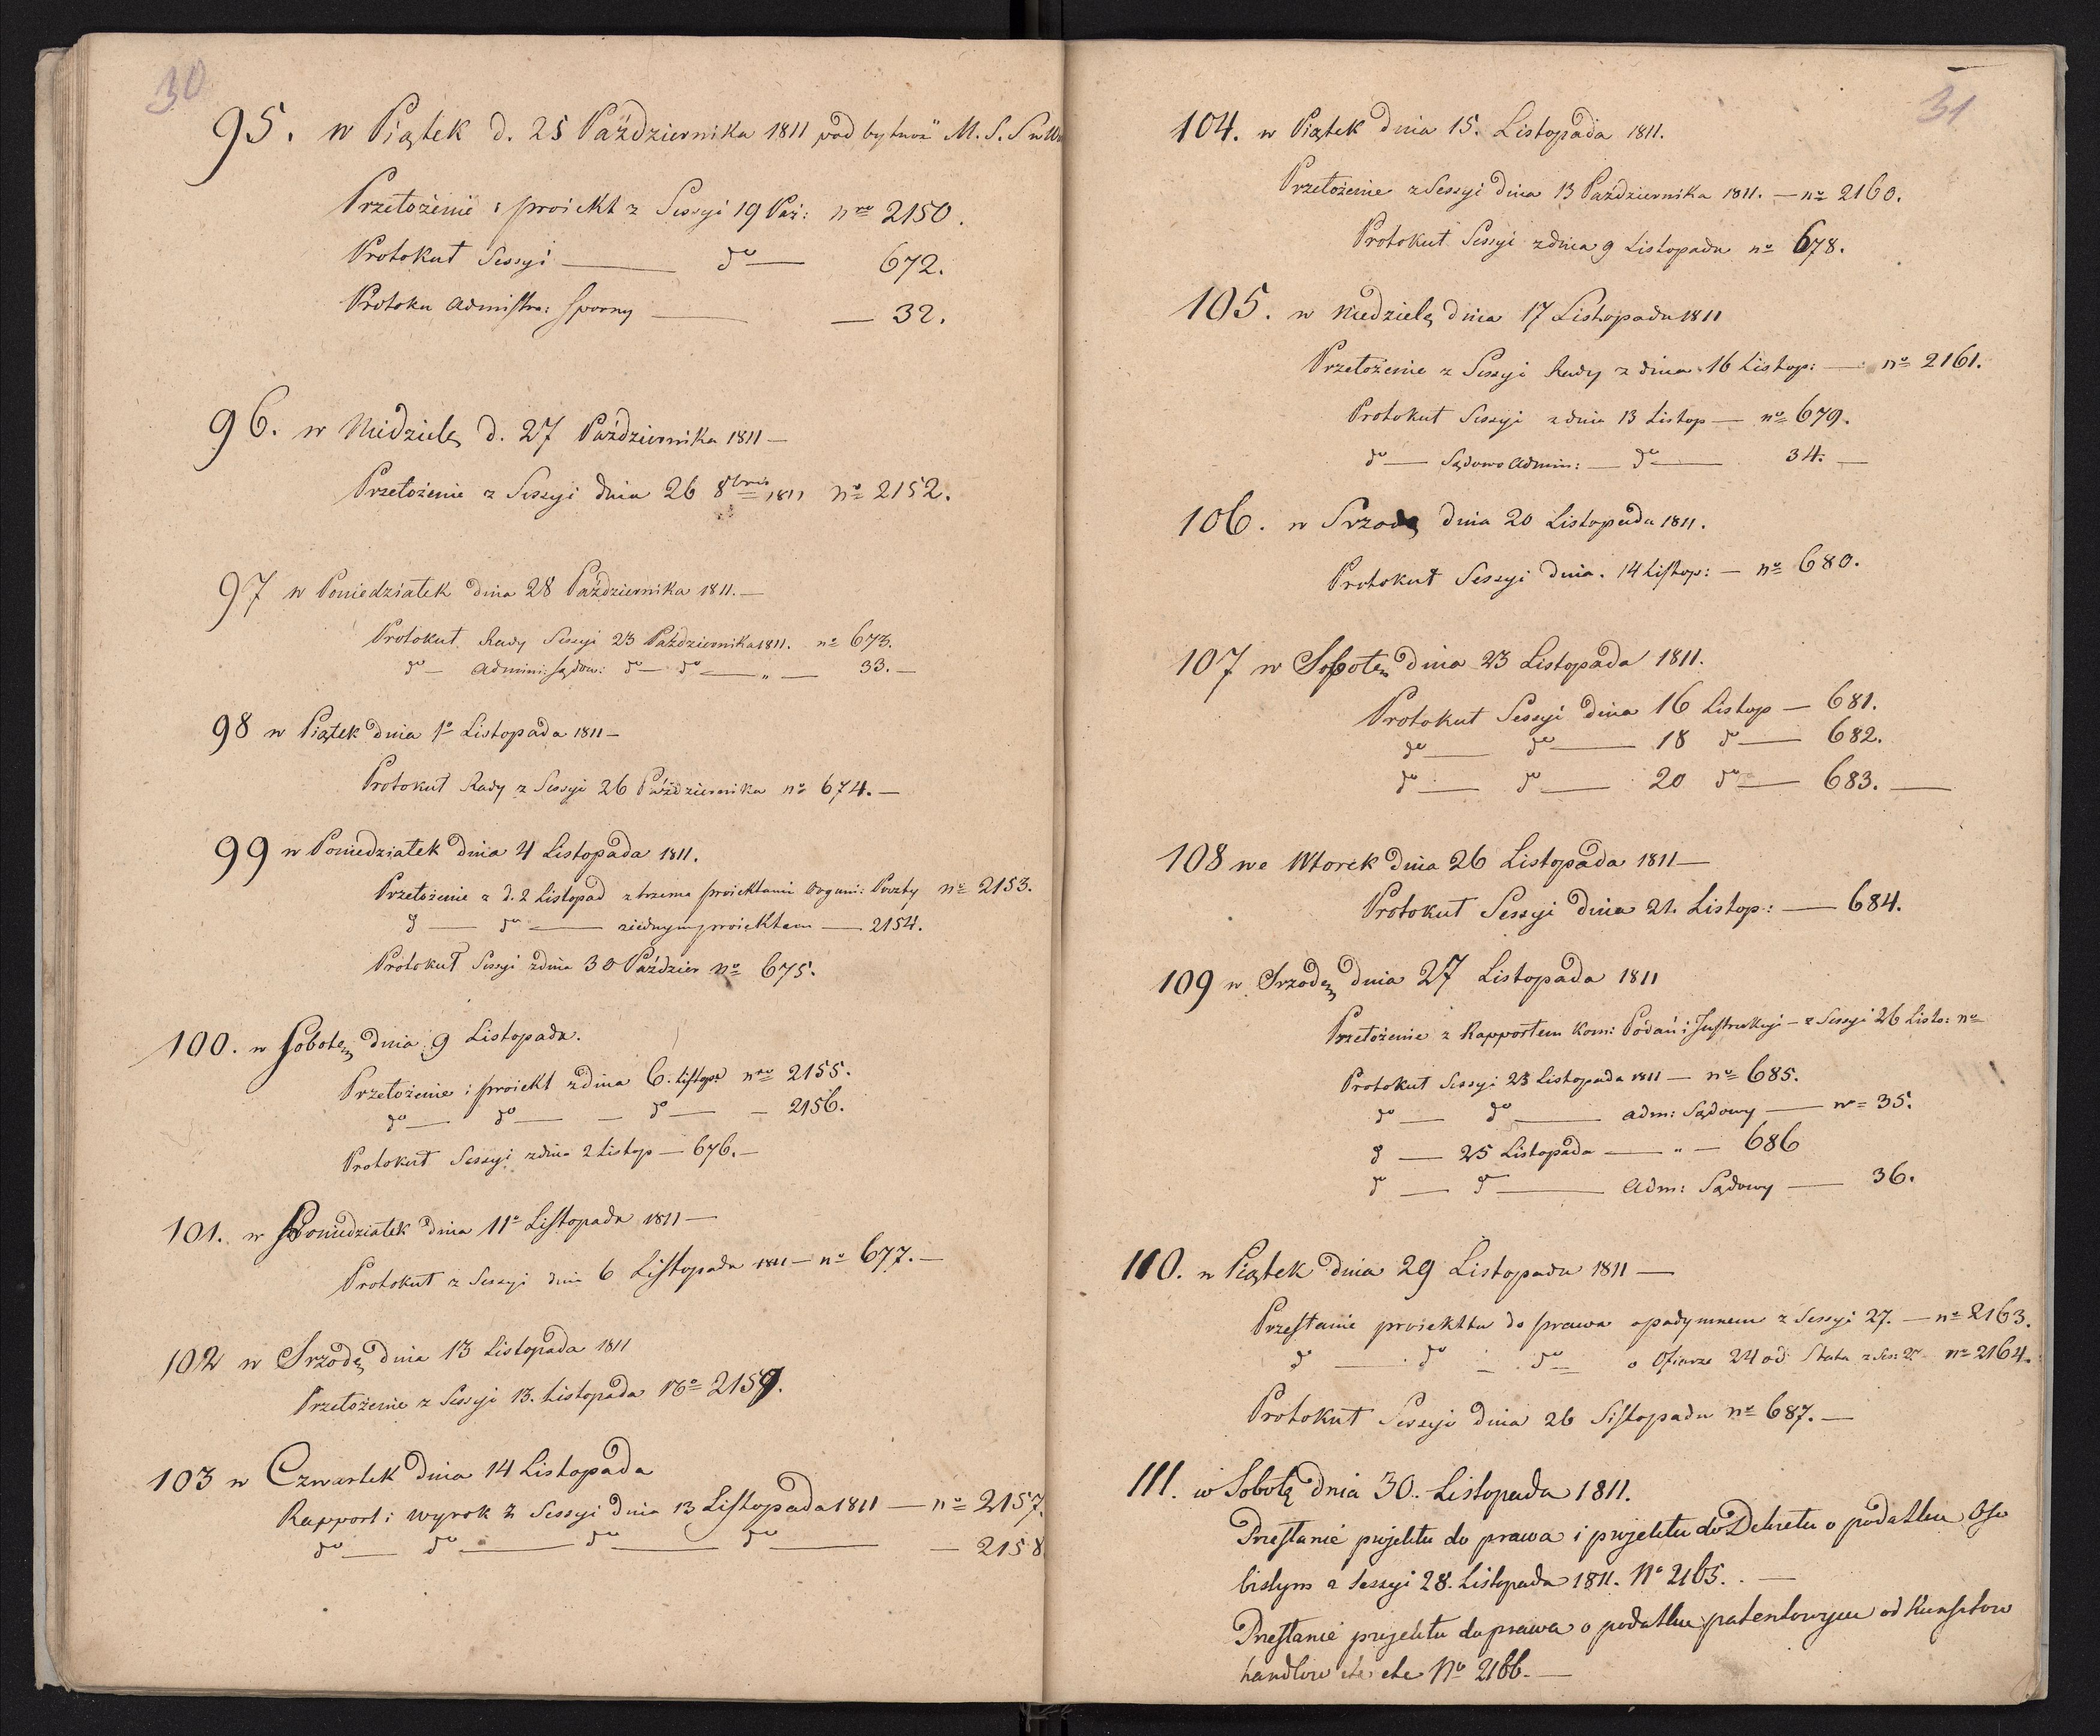 30
95. w Piątek d. 25 Października 1811 pod bytność M. S. S
Przełożenie i proiekt z Sessyi 19 Paź: nro 2150.
Protokuł Sessyi — do — 672.
Protoku Admistra: sporny — — 32.
96. w Niedzielę d. 27 Października 1811 —
Przełożenie z Sessyi dnia 26 8bris 1811 No 2152.
97 w Poniedziałek dnia 28 Października 1811. —
Protokuł Rady Sessyi 23 Października 1811. no 673.
do — Admini: sądow: do — do — „ — 33. —
98 w Piątek dnia 1o Listopada 1811 —
Protokuł Rady z Sessyi 26 Października no 674. —
99 w Poniedziałek dnia 4 Listopada 1811.
Przełożenie z d. 2 Listopad z trzema proiektami Organi: Poczty no 2153.
d — do — ziednym proiektem — 2154.
Protokuł Sessyi zdnia 30 Paździer no 675.
100. w Sobotę dnia 9 Listopada.
Przełożenie i proiekt zdnia 6. listop: nro 2155.
do — do — — do — — 2156.
Protokuł Sessyi zdnia 2 Listop — 676. —
101. w Poniedziałek dnia 11o Listopada 1811 —
Protokuł z Sessyi dnia 6 Listopada 1811 — no 677. —
102 w Srzodę dnia 13 Listopada 1811
Przełożenie z Sessyi 13. Listopada No 2159.
103 w Czwartek dnia 14 Listopada
Rapport i wyrok z Sessyi dnia 13 Listopada 1811 — no 2157.
do — do — do — do — — 2158
31
104. w Piątek dnia 15. Listopada 1811.
Przełożenie z Sessyi dnia 13 Października 1811. — no 2160.
Protokuł Sessyi zdnia 9 Listopada no 678.
105. w Niedzielę dnia 17 Listopada 1811
Przełożenie z Sessyi Rady z dnia 16 Listop: — no 2161.
Protokuł Sessyi zdnia 13 Listop — no 679.
do — Sądowo Admin: — do — 34. —
106. w Srzodę dnia 20 Listopada 1811.
Protokuł Sessyi dnia. 14 Listop: — no 680.
107 w Sobotę dnia 23 Listopada 1811.
Protokuł Sessyi dnia 16 Listop — 681.
do — do — 18 do — 682.
do — do — 20 do — 683. —
108 we Wtorek dnia 26 Listopada 1811 —
Protokuł Sessyi dnia 21. Listop: — 684.
109 w Srzodę dnia 27 Listopada 1811
Przełożenie z Rapportem Kom: Podań i Instrukcyi — z Sessyi 26 Listo: no
Protokuł Sessyi 23 Listopada 1811 — no 685.
do — do — adm: Sądowy — no 35.
d — 25 Listopada — „ — 686
do — do — Adm: Sądowy — 36.
110. w Piątek dnia 29 Listopada 1811 —
Przesłanie proiekttu do prawa opodymnem z Sessyi 27. — no 2163.
do — do — do — o Ofierze 24 od Stata z Ses: 27 no 2164.
Protokuł Sessyi dnia 26 Listopada no 687. —
111. w Sobotę dnia 30. Listopada 1811.
Przesłanie projektu do prawa i projektu do Dekretu o podatku Oso
bistym z Sessyi 28. Listopada 1811. No 2165. —
Przesłanie projektu do prawa o podatku patentowym od Kunsztow
handlow etc etc No 2166. —